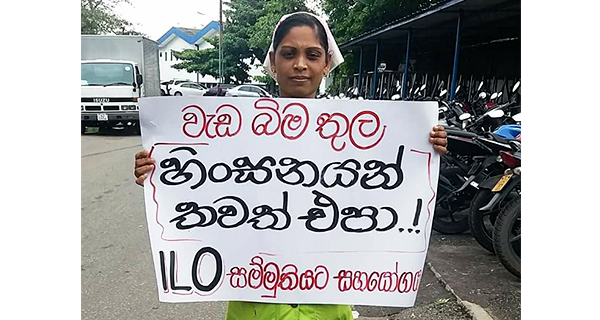 ISUZU
වැඩ බිම තුල
හිංසනයන්
තවත් එපා..!
ILO සම්මුතියට සහයෝගය